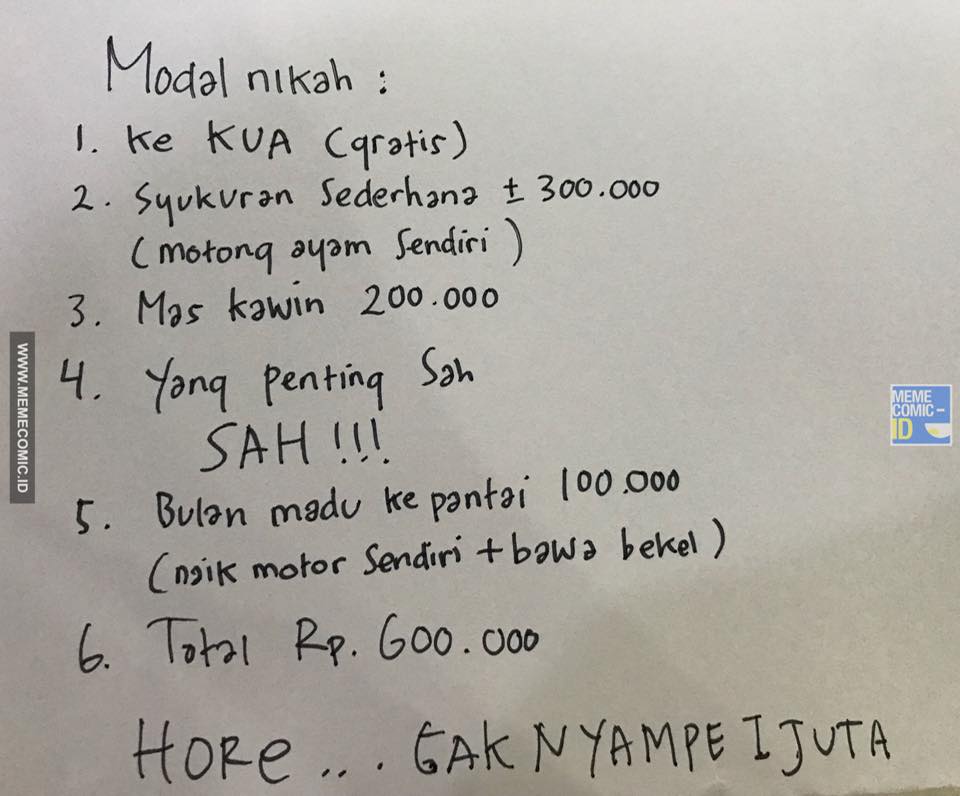 Modal nikah :
1. Ke KUA (gratis)
2. Syukuran Sederhana ± 300.000
(motong ayam sendiri)
3. Mas kawin 200.000
4. Yang penting Sah
SAH !!!
5. Bulan madu ke pantai 100.000
(naik motor sendiri + bawa bekel)
6. Total Rp. 600.000
HORE ... GAK NYAMPE 1 JUTA
WWW.MEMECOMIC.ID
MEME
COMIC-
ID